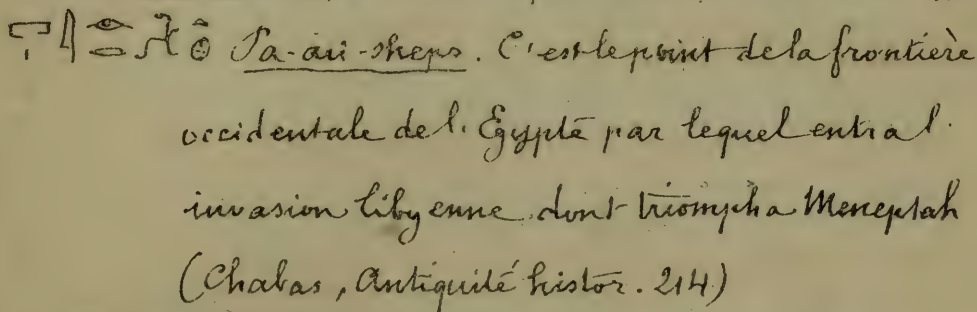 Pa-ari-sheps. C'est le point de la frontière
occidentale de l'Égypte par lequel entra l'
invasion libyenne dont triompha Meneptah
(Chabas, Antiquité histor. 214)